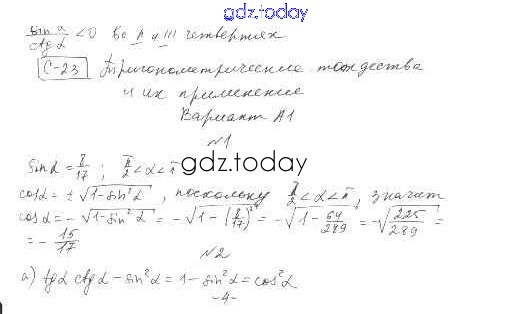 gdz.today
sin α / ctg α < 0 во II и III четвертях
С-23 Тригонометрические тождества
и их применение
Вариант А1
№1
sin α = 8/17 ; π/2 < α < π
gdz.today
cos α = ± √(1 - sin² α) , поскольку π/2 < α < π, значит
cos α = - √(1 - sin² α) = - √(1 - (8/17)²) = - √(1 - 64/289) = - √(225/289) =
= - 15/17
№2
а) tg α ctg α - sin² α = 1 - sin² α = cos² α
-4-
gdz.today